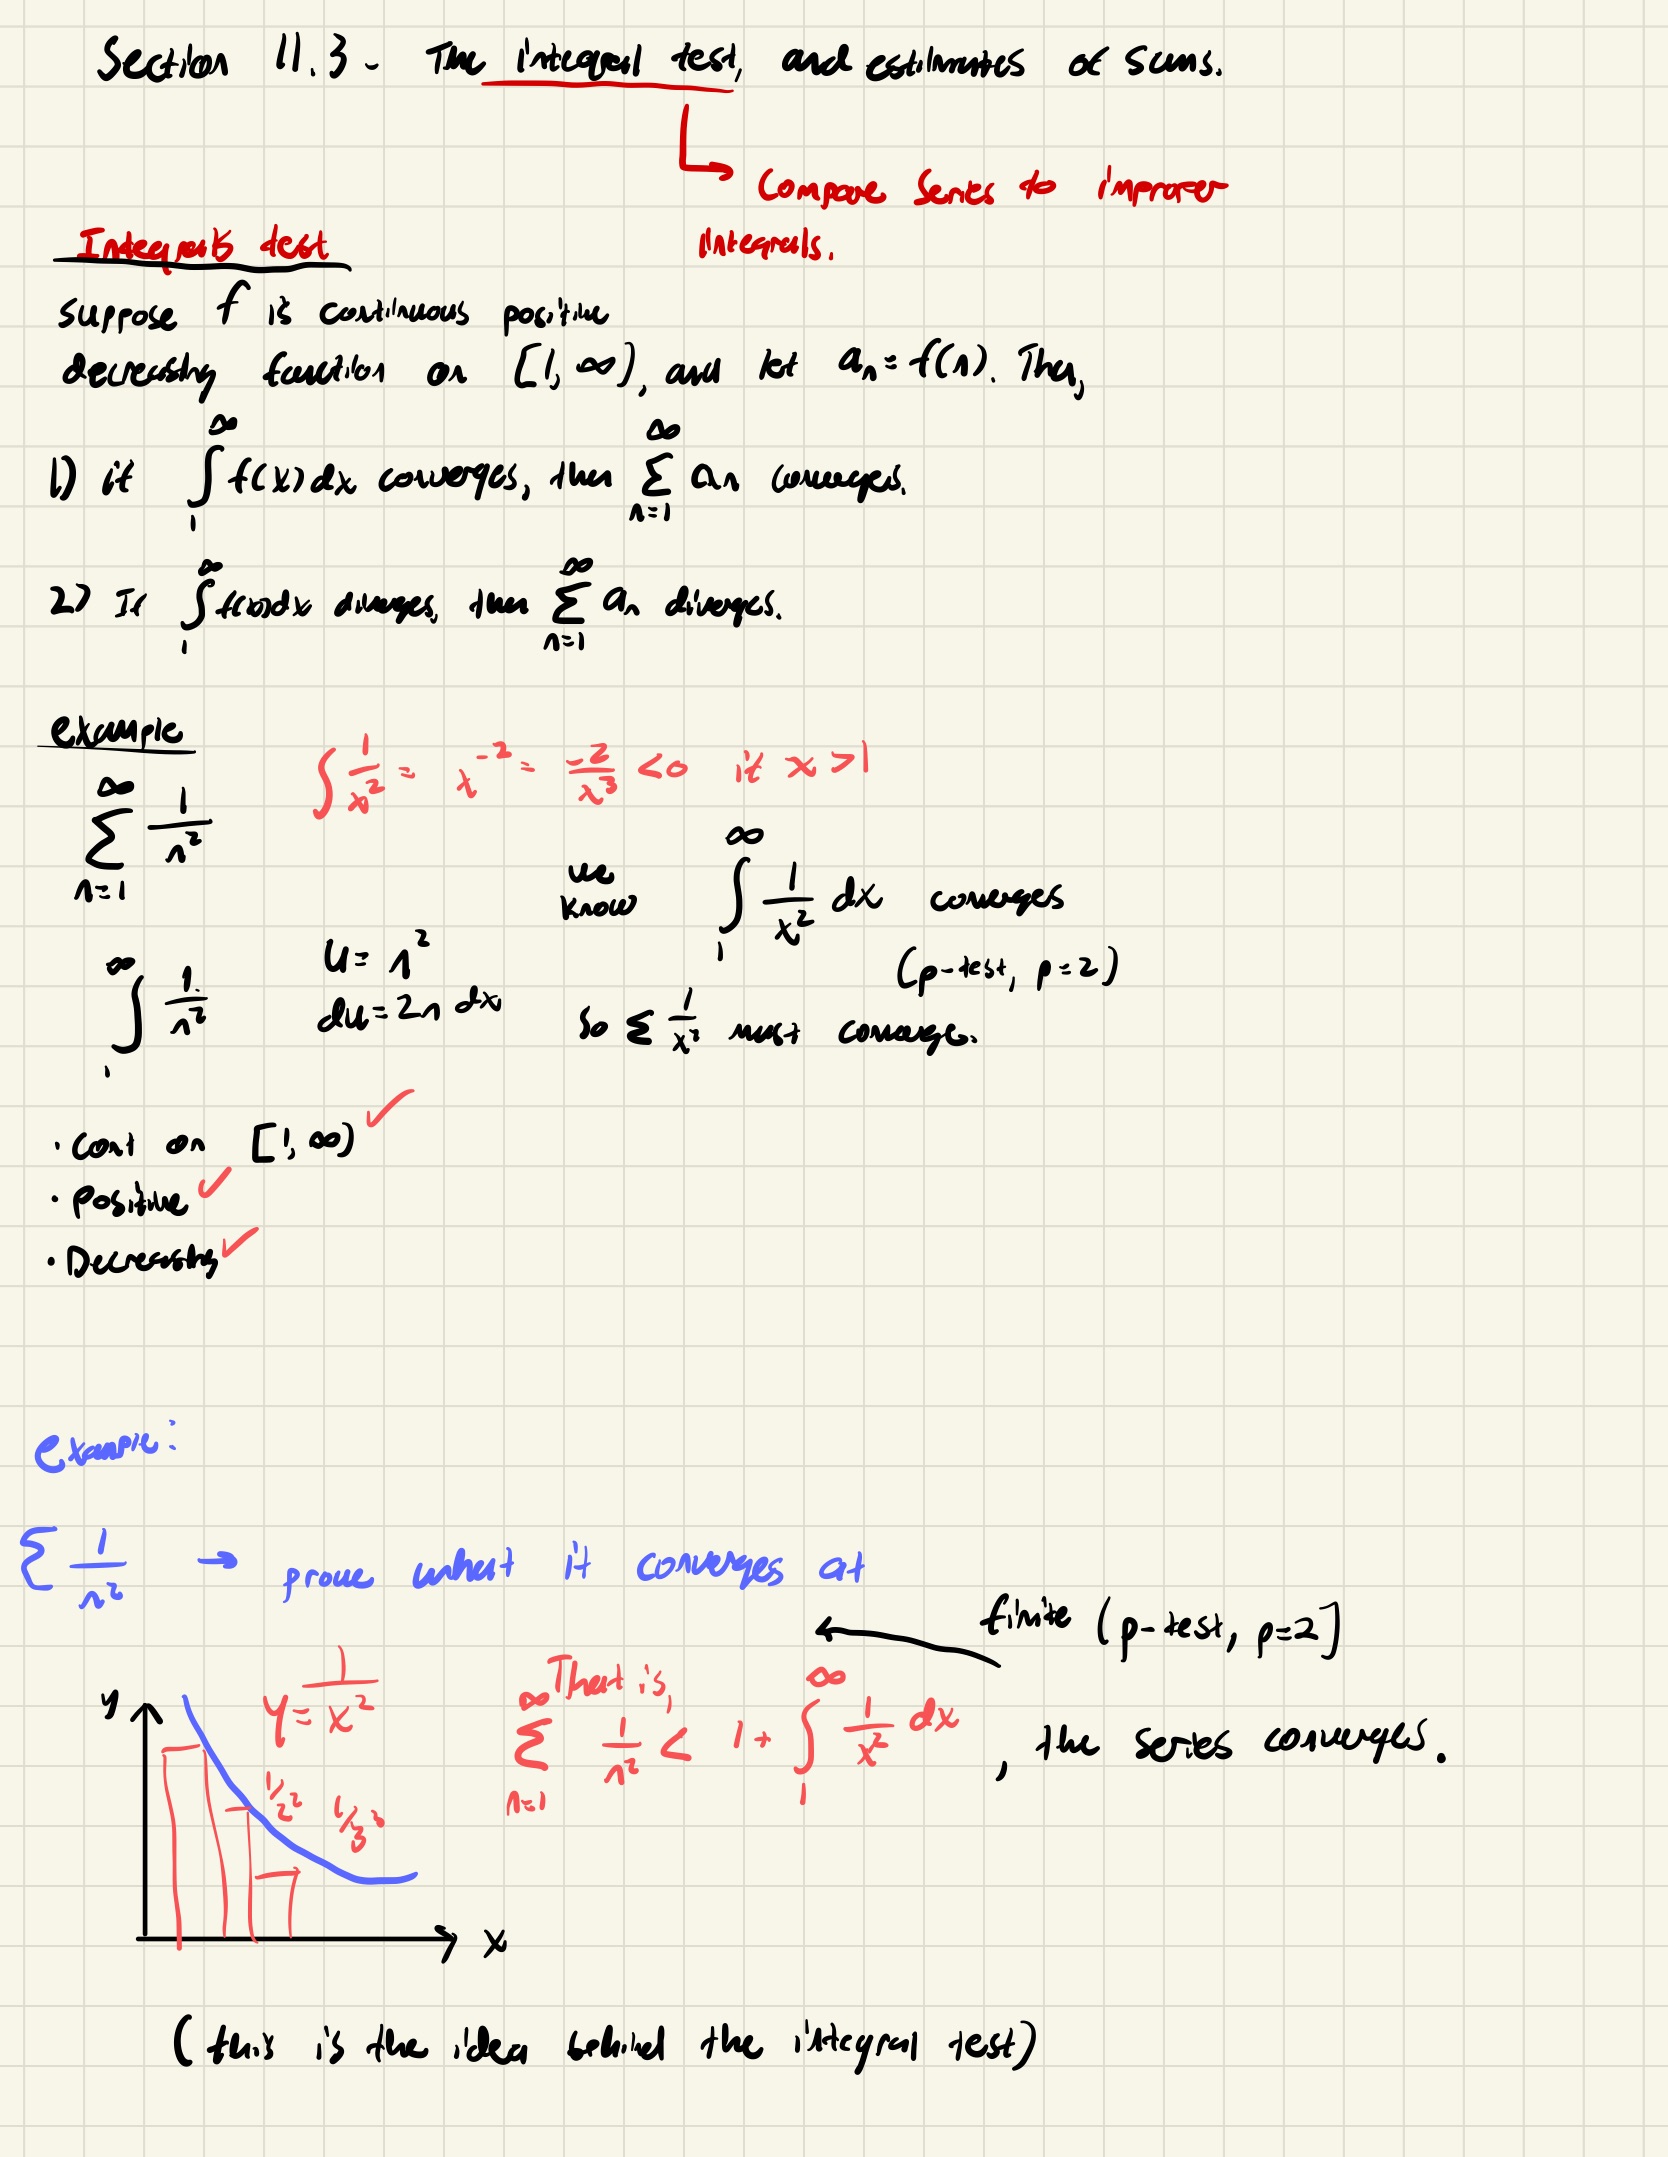 Section 11.3 - The integral test, and estimates of sums.
Compare Series to improper
integrals.
Integrals test
suppose f is continuous positive
decreasing function on [1, ∞), and let aₙ = f(n). Then,
1) if ∫₁^∞ f(x) dx converges, then ∑_{n=1}^∞ aₙ converges.
2) If ∫₁^∞ f(x)dx diverges, then ∑_{n=1}^∞ aₙ diverges.
example
∑_{n=1}^∞ 1/n²
∫ 1/x² = x⁻² = -2/x³ <0 if x >1
we
know ∫₁^∞ 1/x² dx converges
(p-test, p=2)
∫₁^∞ 1/n²
u = n²
du = 2n dx
So ∑ 1/x² must converge.
· cont on [1, ∞) ✓
· Positive ✓
· Decreasing ✓
example:
∑ 1/n² → prove what it converges at
finite (p-test, p=2]
y
y = 1/x²
1/2²
1/3²
x
That is,
∑_{n=1}^∞ 1/n² < 1 + ∫₁^∞ 1/x² dx , the series converges.
(this is the idea behind the integral test)